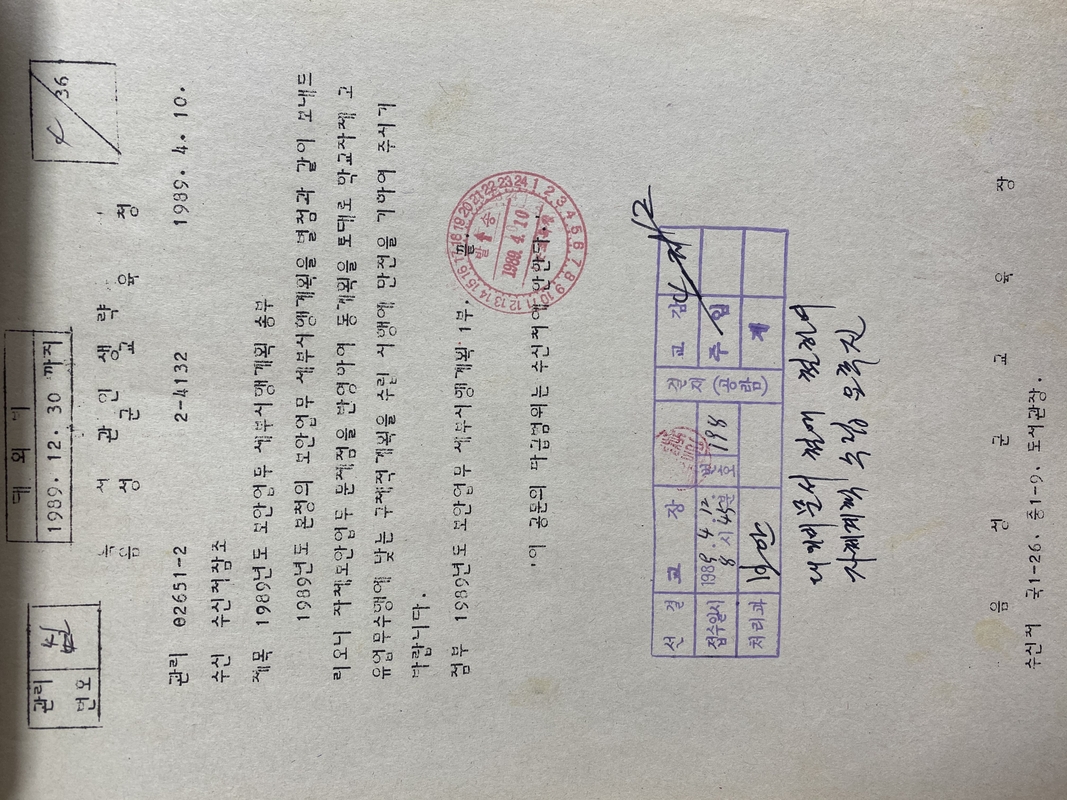 관리
번호
36
대 외 비
1989. 12. 30 까지
녹 서 관 인 생 략
음 성 군 교 육 청
관리 02651-2 2-4132 1989. 4. 10.
수신 수신처참조
제목 1989년도 보안업무 세부시행계획 송부
1989년도 본청의 보안업무 세부시행계획을 별첨과 같이 보내드
리오니 자체보안업무 문제점을 반영하여 동계획을 토대로 학교자체 고
유업무수행에 맞는 구체적계획을 수립 시행에 만전을 기하여 주시기
바랍니다.
첨부 1989년도 보안업무 세부시행계획 1부. 끝.
이 공문의 파급범위는 수신처에 한한다.
발송
1989. 4. 10
1 2 3 4 5 6 7 8 9 10 11 12 13 14 15 16 17 18 19 20 21 22 23 24
선결 교 장 교 감
접수일시 1989. 4. 12. 8시 45분 번호 198 주 임
처리과 계
결재 (공람)
음 성 군 교 육 장
수신처 국1-26. 중1-9. 도서관장.